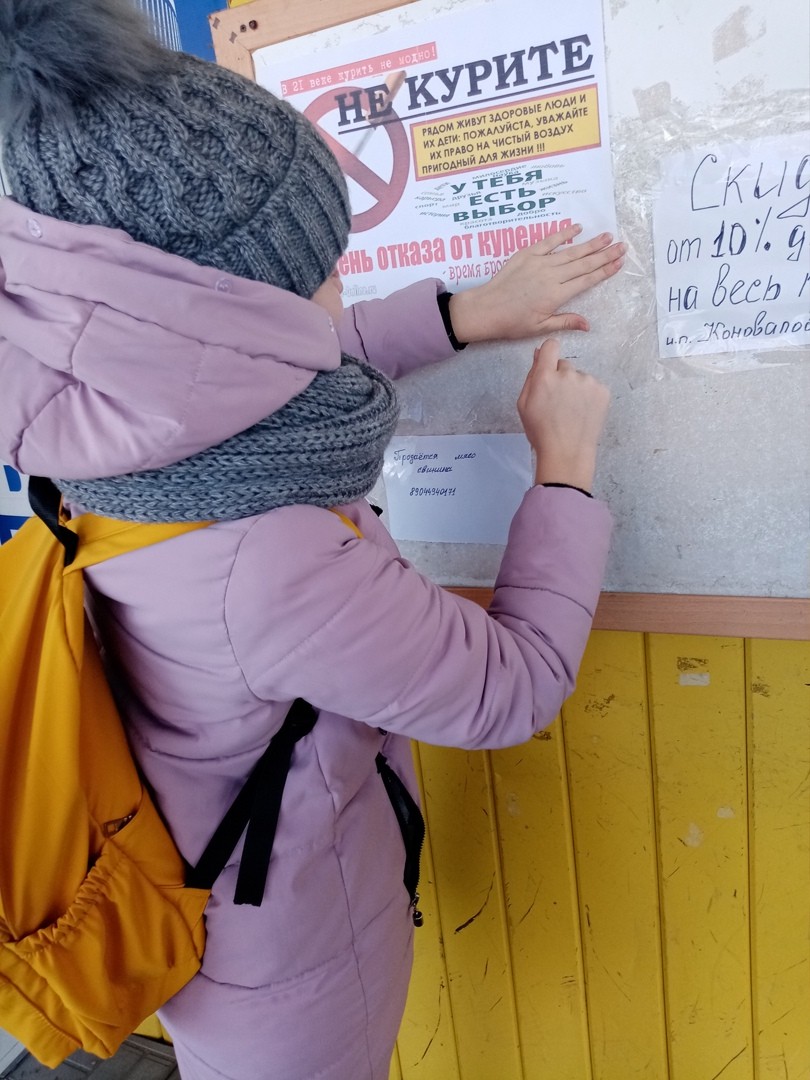 В 21 веке курить не модно!
НЕ КУРИТЕ
РЯДОМ ЖИВУТ ЗДОРОВЫЕ ЛЮДИ И
ИХ ДЕТИ: ПОЖАЛУЙСТА, УВАЖАЙТЕ
ИХ ПРАВО НА ЧИСТЫЙ ВОЗДУХ
ПРИГОДНЫЙ ДЛЯ ЖИЗНИ !!!
У ТЕБЯ
ЕСТЬ
ВЫБОР
благотворительность
ень отказа от курения
- время бро
Ски
от 10%
на весь
и.п. Коновало
Продаётся мясо
свинина
89044940171